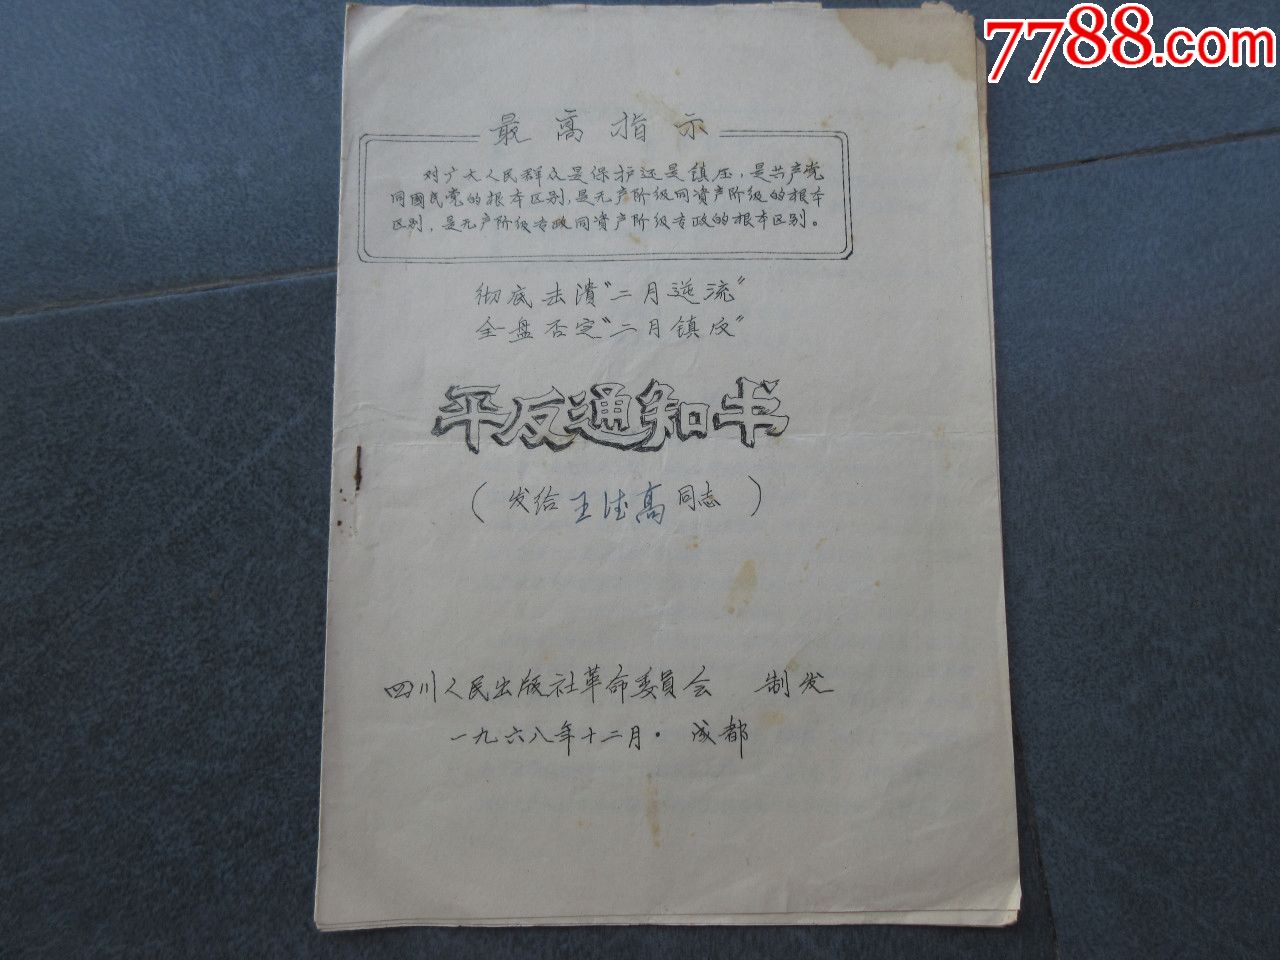 7788.com
最高指示
对广大人民群众是保护还是镇压，是共产党
同國民党的根本区别，是无产阶级同资产阶级的根本
区别，是无产阶级专政同资产阶级专政的根本区别。
彻底击潰“二月逆流”
全盘否定“二月镇反”
平反通知书
（发给王德高同志）
四川人民出版社革命委員会 制发
一九六八年十二月·成都